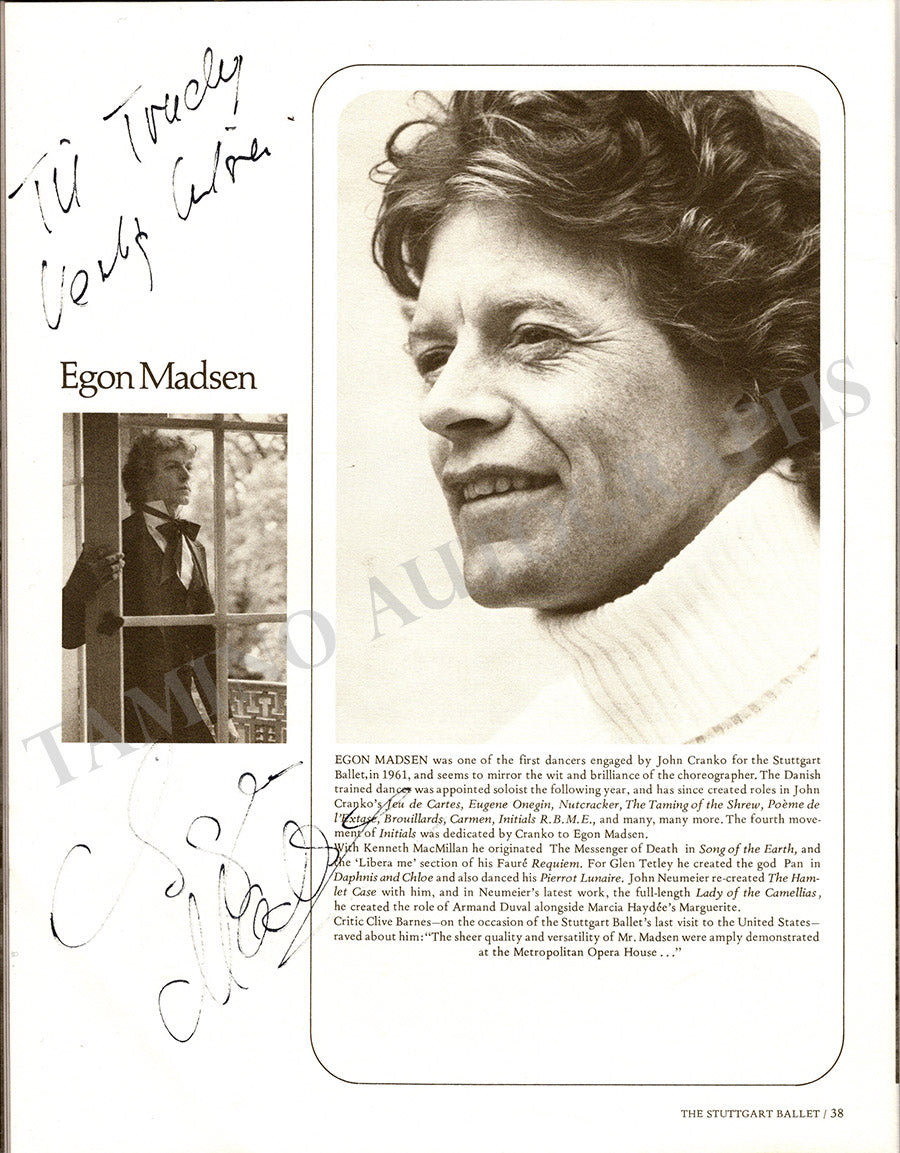 Til
Egon Madsen
EGON MADSEN was one of the first dancers engaged by John Cranko for the Stuttgart
Ballet, in 1961, and seems to mirror the wit and brilliance of the choreographer. The Danish
trained dancer was appointed soloist the following year, and has since created roles in John
Cranko's Jeu de Cartes, Eugene Onegin, Nutcracker, The Taming of the Shrew, Poème de
l'Extase, Brouillards, Carmen, Initials R.B.M.E., and many, many more. The fourth move-
ment of Initials was dedicated by Cranko to Egon Madsen.
With Kenneth MacMillan he originated The Messenger of Death in Song of the Earth, and
the 'Libera me' section of his Fauré Requiem. For Glen Tetley he created the god Pan in
Daphnis and Chloe and also danced his Pierrot Lunaire. John Neumeier re-created The Ham-
let Case with him, and in Neumeier's latest work, the full-length Lady of the Camellias,
he created the role of Armand Duval alongside Marcia Haydée's Marguerite.
Critic Clive Barnes—on the occasion of the Stuttgart Ballet's last visit to the United States—
raved about him: "The sheer quality and versatility of Mr. Madsen were amply demonstrated
at the Metropolitan Opera House . . ."
THE STUTTGART BALLET / 38
TAMINO AUTOGRAPHS